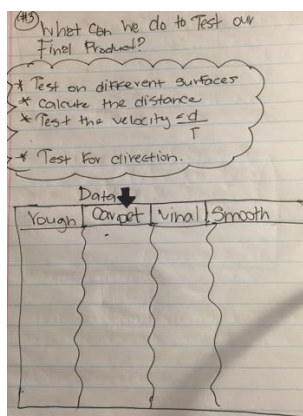 #3 What can we do to Test our
Final Product?
* Test on different surfaces
* Calcute the distance
* Test the velocity = d/T
* Test for direction.
Data
rough | carpet | vinal | Smooth